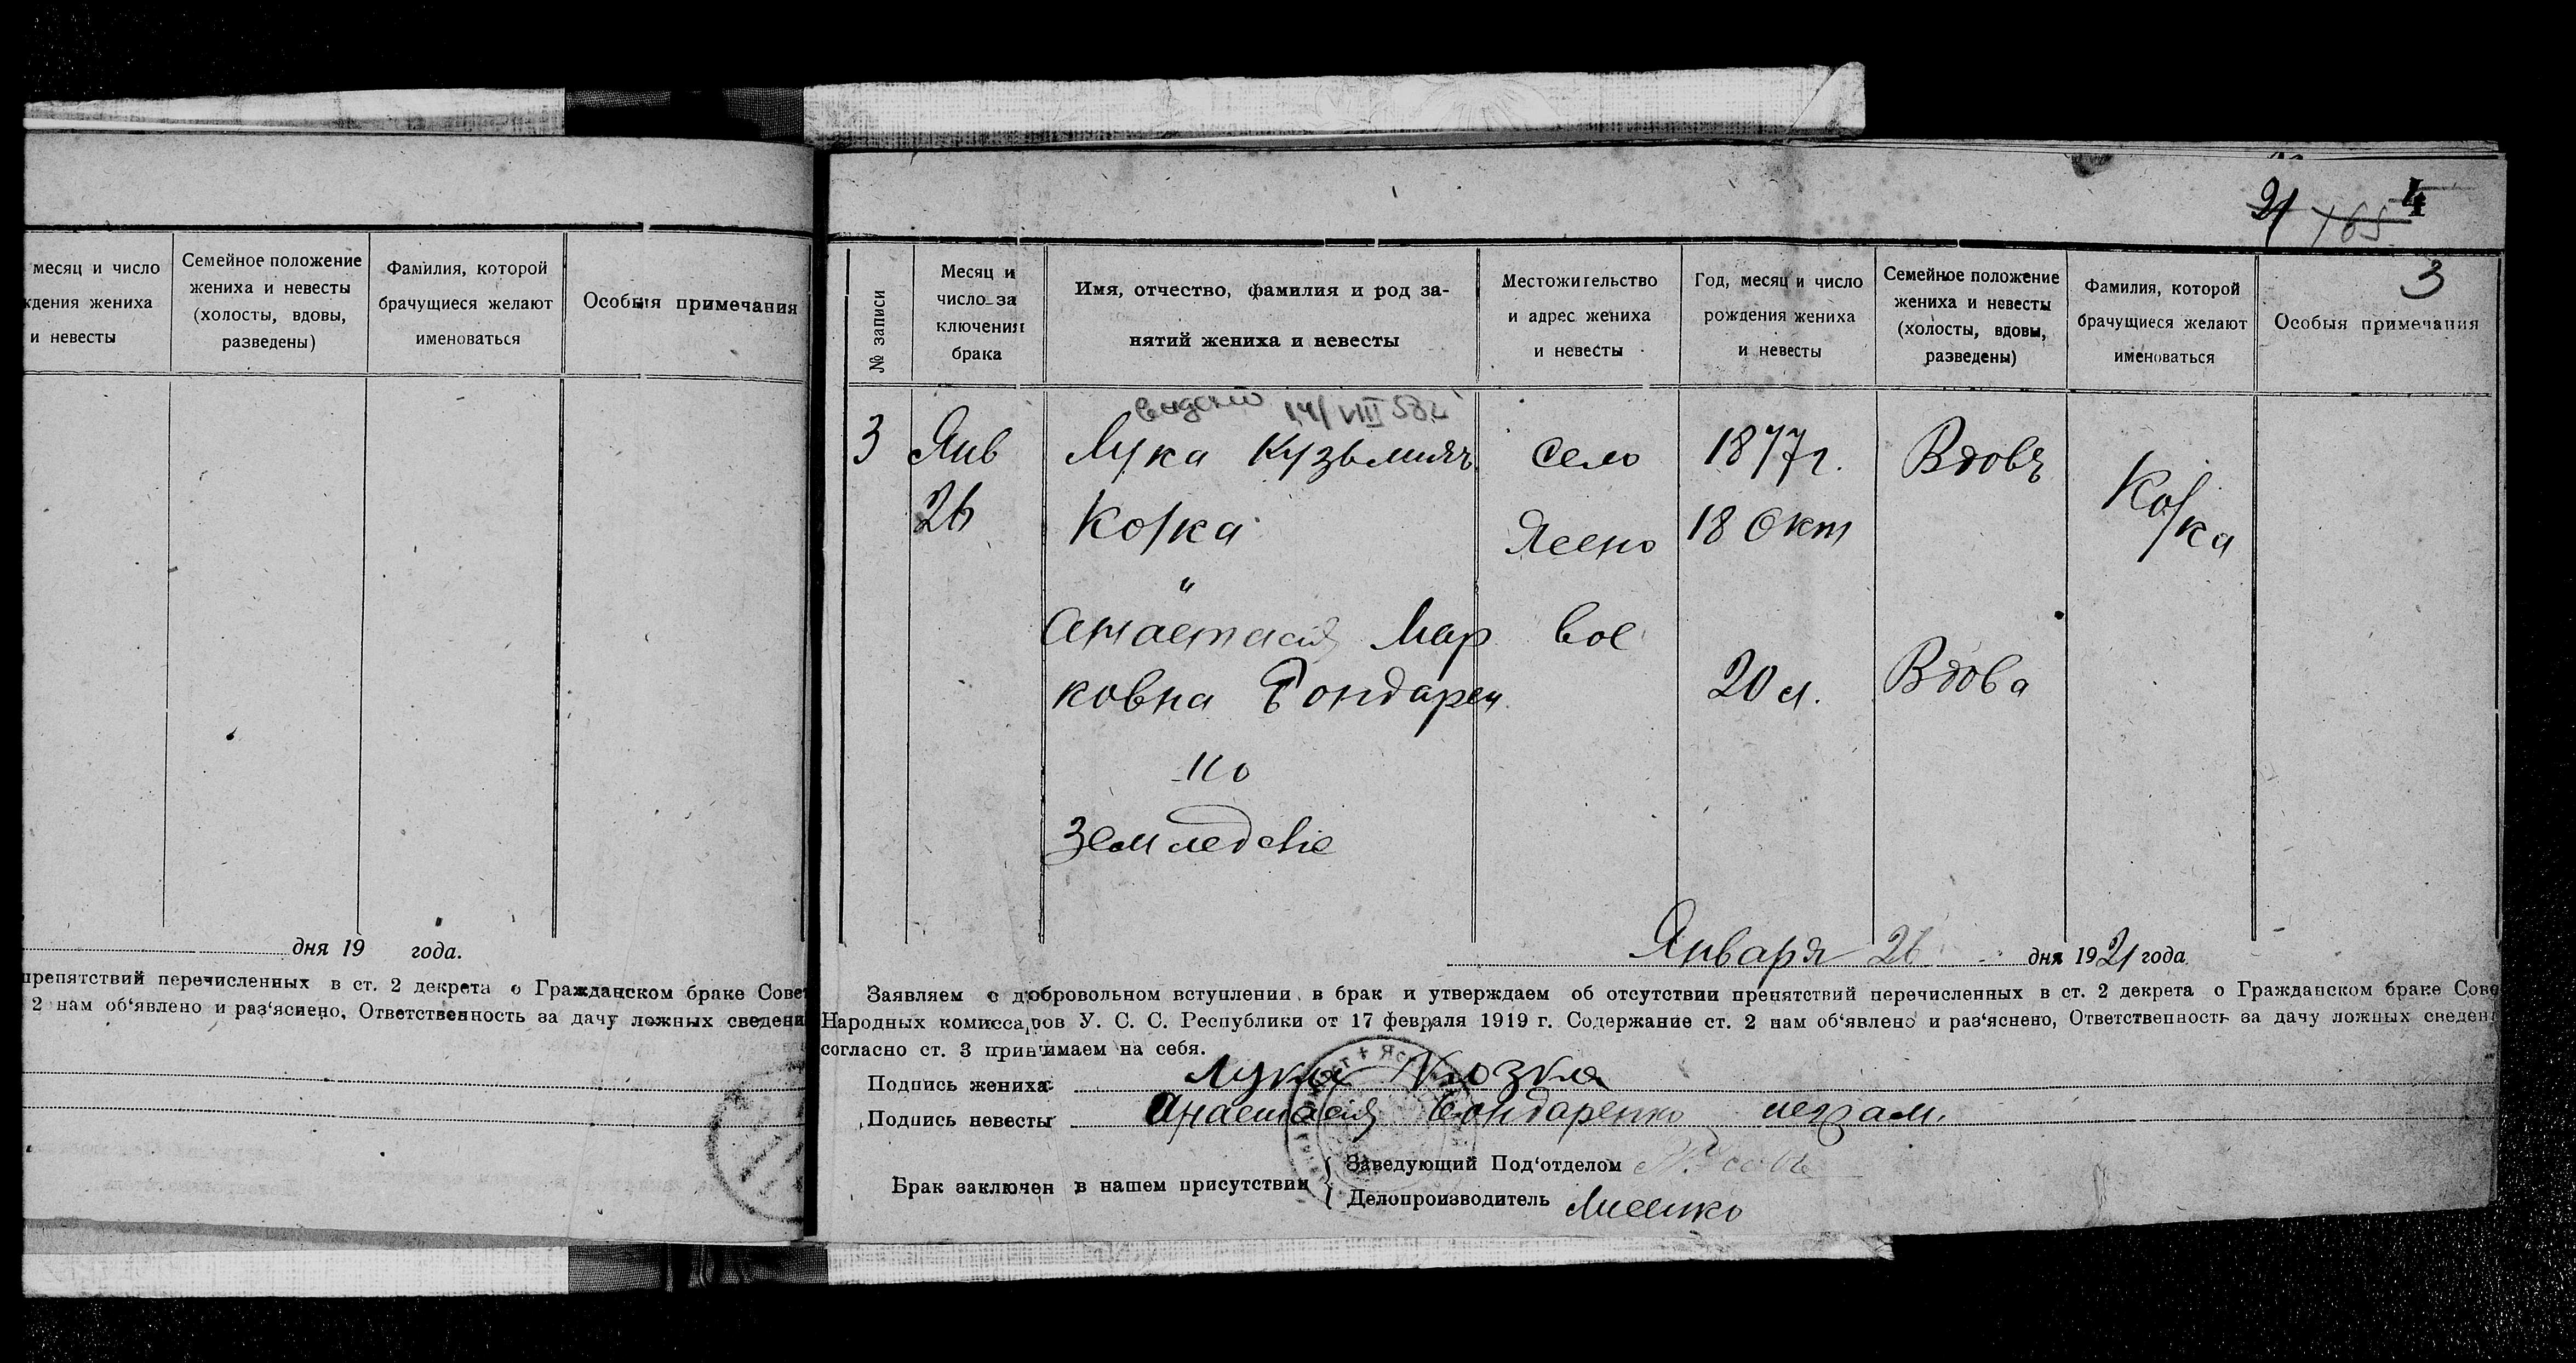 21 165 4
3
месяц и число
ждения жениха
и невесты
Семейное положение
жениха и невесты
(холосты, вдовы,
разведены)
Фамилия, которой
брачущиеся желают
именоваться
Особыя примечания
дня 19 года.
препятствий перечисленных в ст. 2 декрета о Гражданском браке Сове
2 нам об‘явлено и раз‘яснено, Ответственность за дачу ложных сведени
№ записи
Месяц и
число за
ключения
брака
Имя, отчество, фамилия и род за-
нятий жениха и невесты
Местожительство
и адрес жениха
и невесты
Год, месяц и число
рождения жениха
и невесты
Семейное положение
жениха и невесты
(холосты, вдовы,
разведены)
Фамилия, которой
брачущиеся желают
именоваться
Особыя примечания
3
Янв
26
14/VIII 58
Лука Кузьмичъ
Козка
"
Анастасія Мар
ковна Бондарен
ко
Земледеліе
село
Ясено
вое
1877 г.
18 Окт
20 л.
Вдовъ
Вдова
Козка
Января 26 дня 1921 года
Заявляем о добровольном вступлении в брак и утверждаем об отсутствии препятствий перечисленных в ст. 2 декрета о Гражданском браке Сове
Народных комиссаров У. С. С. Республики от 17 февраля 1919 г. Содержание ст. 2 нам об‘явлено и раз‘яснено, Ответственность за дачу ложных сведен
согласно ст. 3 принимаем на себя.
Подпись жениха Лука Козка
Подпись невесты Анастасія Бондаренко неграм.
Брак заключен в нашем присутствии
Заведующий Под‘отделом
Делопроизводитель